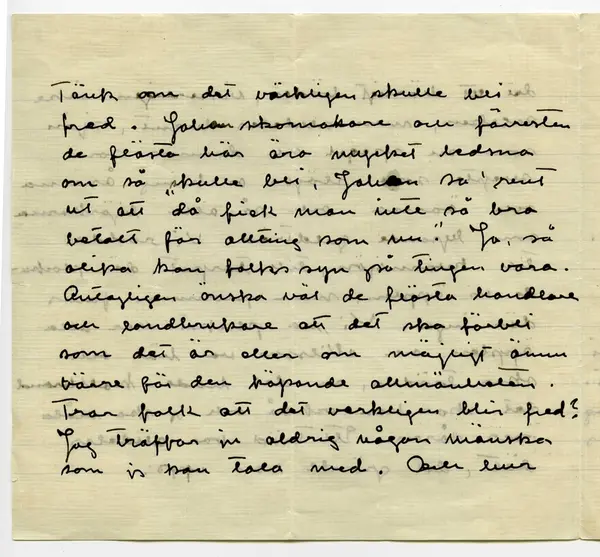 Tänk om det värkligen skulle bli
fred. Johan skomakare och förresten
de flästa här äro mycket ledsna
om så skulle bli, Johan sa' rent
ut att "då fick man inte så bra
betalt för allting som nu". Ja, så
olika kan folks syn på tingen vara.
Antagligen önska väl de flästa handlare
och landbrukare att det ska förbli
som det är eller om möjligt ännu
bättre för den köpande allmänheten.
Tror folk att det verkligen blir fred?
Jag träffar ju aldrig någon mänska
som jg kan tala med. Och hur